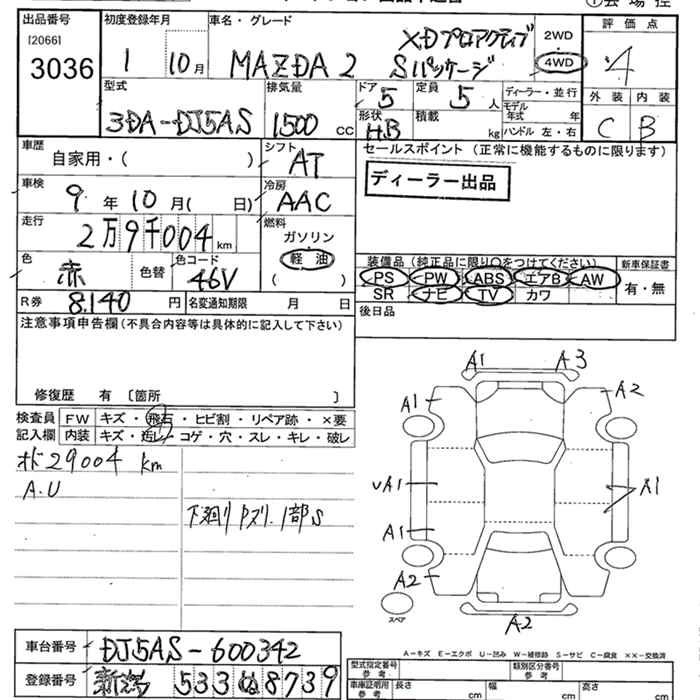 出品番号 初度登録年月 車名・グレード ①会場控
[2066] 3036 1 10月 MAZDA2 XDプロアクティブ Sパッケージ 2WD 4WD 評価点 4
型式 3DA-DJ5AS 排気量 1500 cc ドア 5 定員 5 人 ディーラー・並行 外装 内装
形状 H.B 積載 kg モデル年式 年 ハンドル 左・右 C B
車歴 自家用・( ) シフト AT セールスポイント (正常に機能するものに限ります)
車検 9年10月( 日) 冷房 AAC ディーラー出品
走行 2万9千004km 燃料 ガソリン 軽油 ( )
色 赤 色替 色コード 46V 装備品(純正品に限り○をつけてください) 新車保証書
PS PW ABS エアB AW 有・無
SR ナビ TV カワ
R券 8.140円 名変通知期限 月 日 後日品
注意事項申告欄(不具合内容等は具体的に記入して下さい)
修復歴 有 〔箇所 〕
検査員 FW キズ・飛石・ヒビ割・リペア跡・×要
記入欄 内装 キズ・汚レ・コゲ・穴・スレ・キレ・破レ
29004 km
A.U
下廻り 1部S
A1 A3
A1 A2
A1 A1
A1
A2
A2
スペア
A-キズ E-エクボ U-凹み W-補修跡 S-サビ C-腐食 ××-交換済
車台番号 DJ5AS-600342
登録番号 新潟 533 ぬ 8739
型式指定番号 参考 類別区分番号 参考
車庫証明用 参考 長さ cm 幅 cm 高さ cm